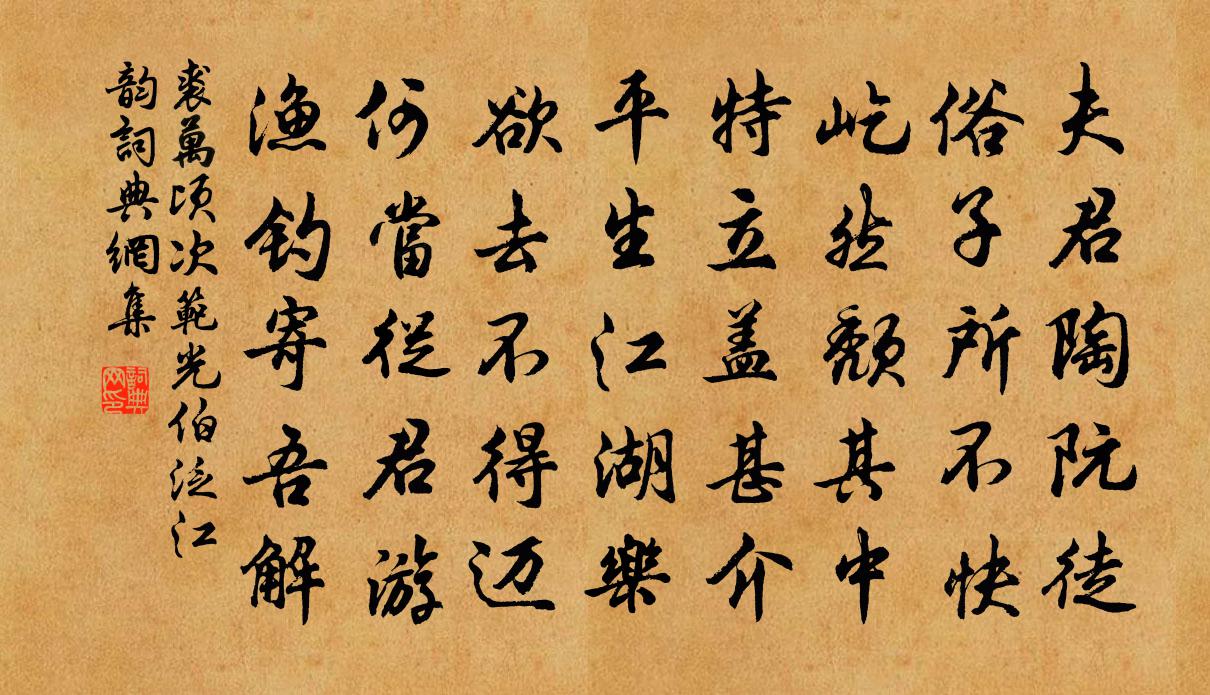 夫君陶阮徒
俗子所不快
屹然頽其中
特立盖甚介
平生江湖樂
欲去不得迈
何當從君游
漁钓寄吾解
裘萬顷次範光伯泛江
韵詞典網集
詞典网印